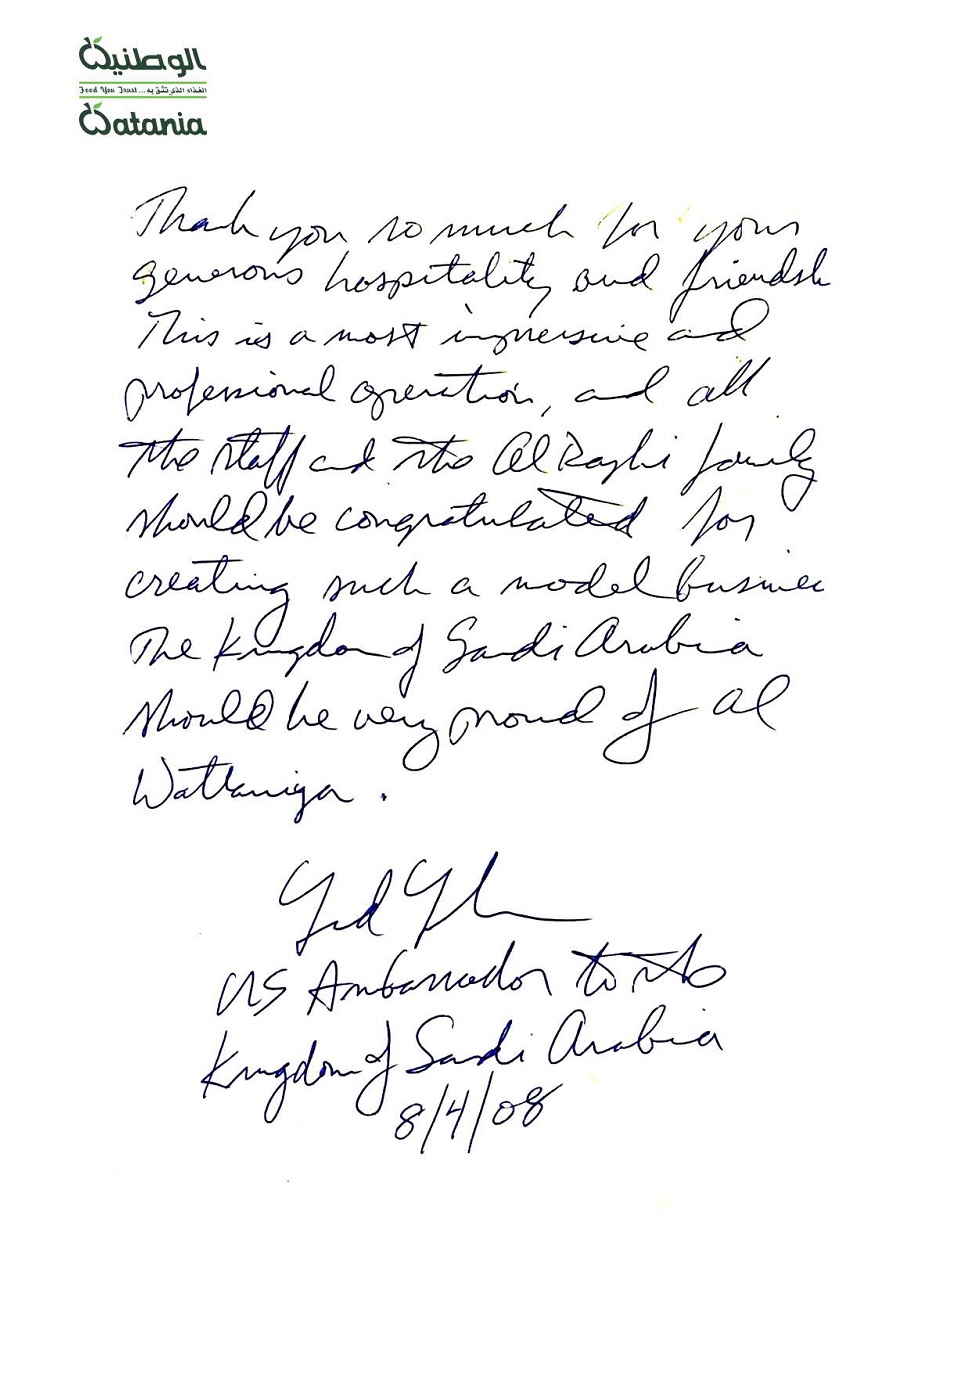 الوطنية
Food You Trust... الغذاء الذي تثق به
Watania
Thank you so much for your
generous hospitality and friendsh
This is a most impressive and
professional operation, and all
the staff and the Al Rajhi family
should be congratulated for
creating such a model busines
The Kingdom of Saudi Arabia
should be very proud of Al
Wattaniya.
US Ambassador to the
Kingdom of Saudi Arabia
8/4/08